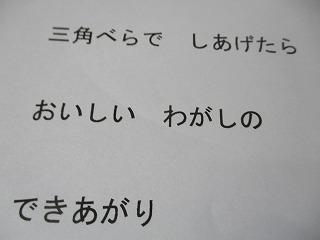 三角べらで　しあげたら
おいしい　わがしの
できあがり